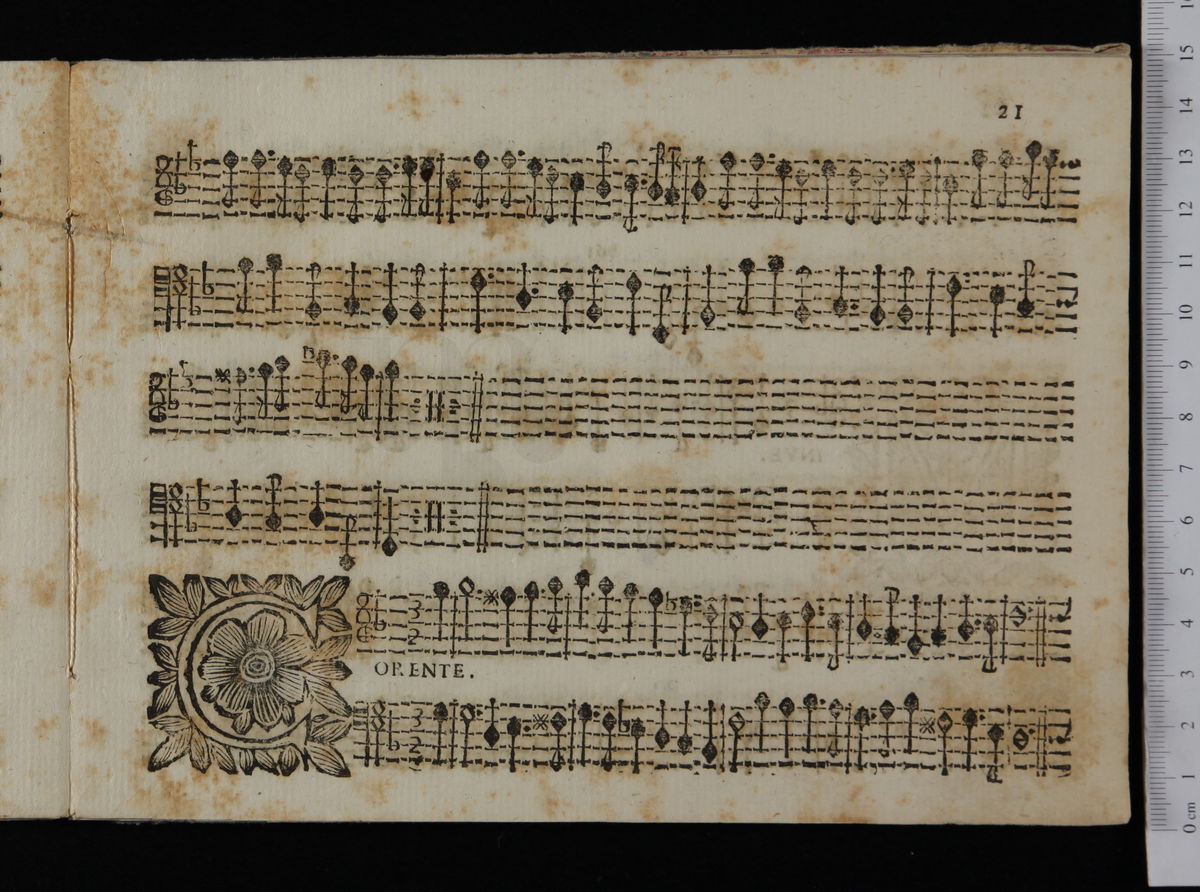 21
3
2
CORENTE.
3
2
15
14
13
12
11
10
9
8
7
6
5
4
3
2
1
0 cm